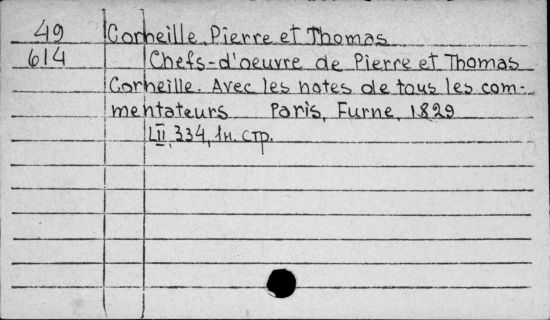 49 Corneille, Pierre et Thomas
614 Chefs-d'oeuvre de Pierre et Thomas
Corneille. Avec les notes de tous les com-
mentateurs Paris, Furne, 1829
LII, 334, 1н. стр.